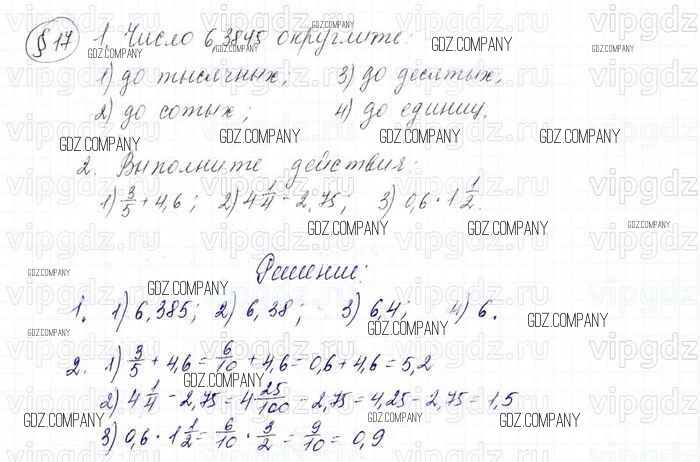 § 17 1. Число 6,3845 округлите:
1) до тысячных; 3) до десятых;
2) до сотых; 4) до единиц.
2. Выполните действия:
1) 3/5 + 4,6; 2) 4 1/4 - 2,75; 3) 0,6 · 1 1/2.
Решение:
1. 1) 6,385; 2) 6,38; 3) 6,4; 4) 6.
2. 1) 3/5 + 4,6 = 6/10 + 4,6 = 0,6 + 4,6 = 5,2
2) 4 1/4 - 2,75 = 4 25/100 - 2,75 = 4,25 - 2,75 = 1,5
3) 0,6 · 1 1/2 = 6/10 · 3/2 = 9/10 = 0,9
GDZ.COMPANY
vipgdz.ru